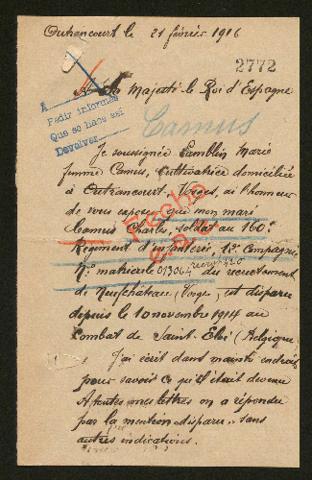 Outrancourt le 21 février 1916
2772
A Sa Majesté le Roi d'Espagne
A
Pedir informes
Que se hace así
Devolver
Camus
Je soussignée Lamblin Marie
femme Camus, Cultivatrice domiciliée
à Outrancourt, Vosges, ai l'honneur
de vous exposer que mon mari
Camus Charles, soldat au 160e
Régiment d'infanterie, 1e Compagnie
No matricule 013064 du recrutement
de Neufchâteau (Vosges) est disparu
depuis le 10 novembre 1914 au
Combat de Saint-Eloi (Belgique
J'ai écrit dans maints endroits
pour savoir ce qu'il était devenu
A toutes mes lettres on a répondu
par la mention disparu, sans
autres indications.